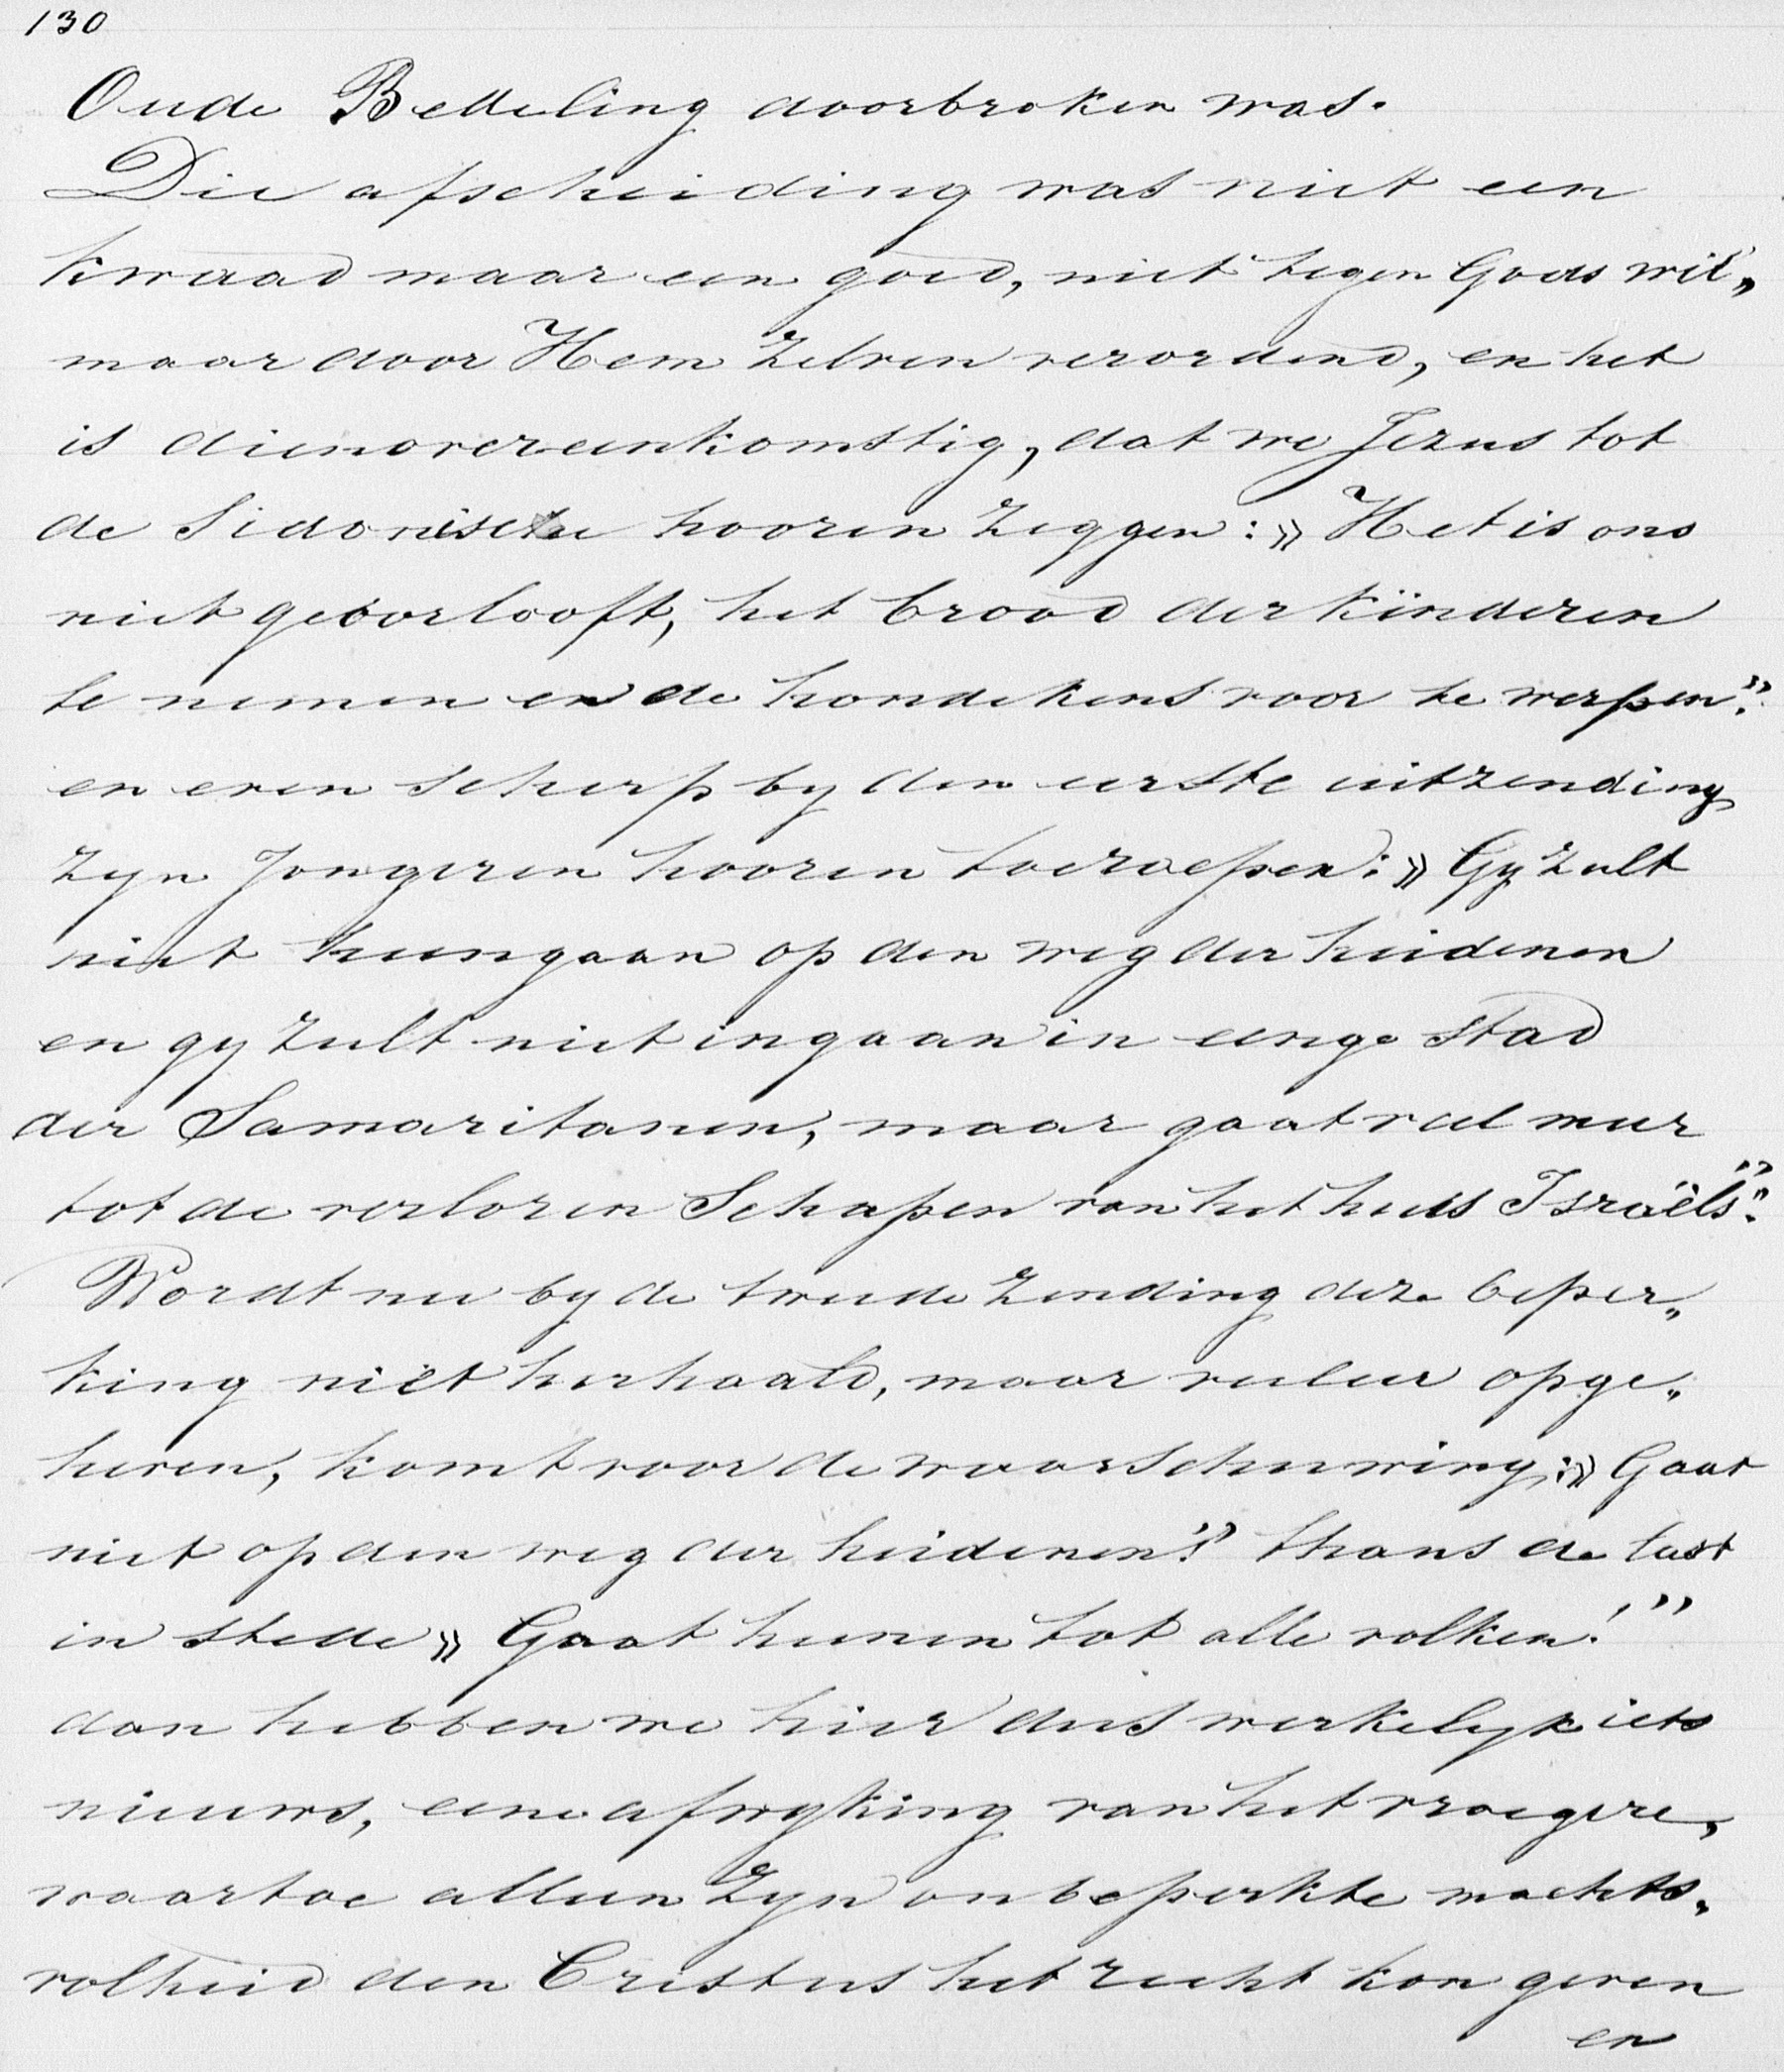 130
Oude Bedeeling doorbroken was.
Die afscheiding was niet een
kwaad maar een goed, niet tegen Gods wil„
maar door Hem Zelven verordend, en het
is dienovereenkomstig, dat we Jezus tot
de Sidonische hooren zeggen: » Het is ons
niet geoorlooft, het brood der kinderen
te nemen en de hondekens voor te werpen".
en even scherp by den eerste uitzending
zyn Jongeren hooren toeroepen: » Gy zult
niet heengaan op den weg der heidenen
en gy zult niet ingaan in eenge stad
der Samaritanen, maar gaat veel meer
tot de verloren Schapen van het huis Israëls".
Wordt nu by de tweede zending deze beper„
king niet herhaald, maar veeleer opge„
heven, komt voor de waarschuwing: » Gaat
niet op den weg der heidenen!" thans de last
in stede » Gaat henen tot alle volken!"
dan hebben we hier dus werkelyk iets
nieuws, eene afwyking van het vroegere,
waartoe alleen Zyn onbeperkte machts„
volheid den Cristus het recht kon geven
en